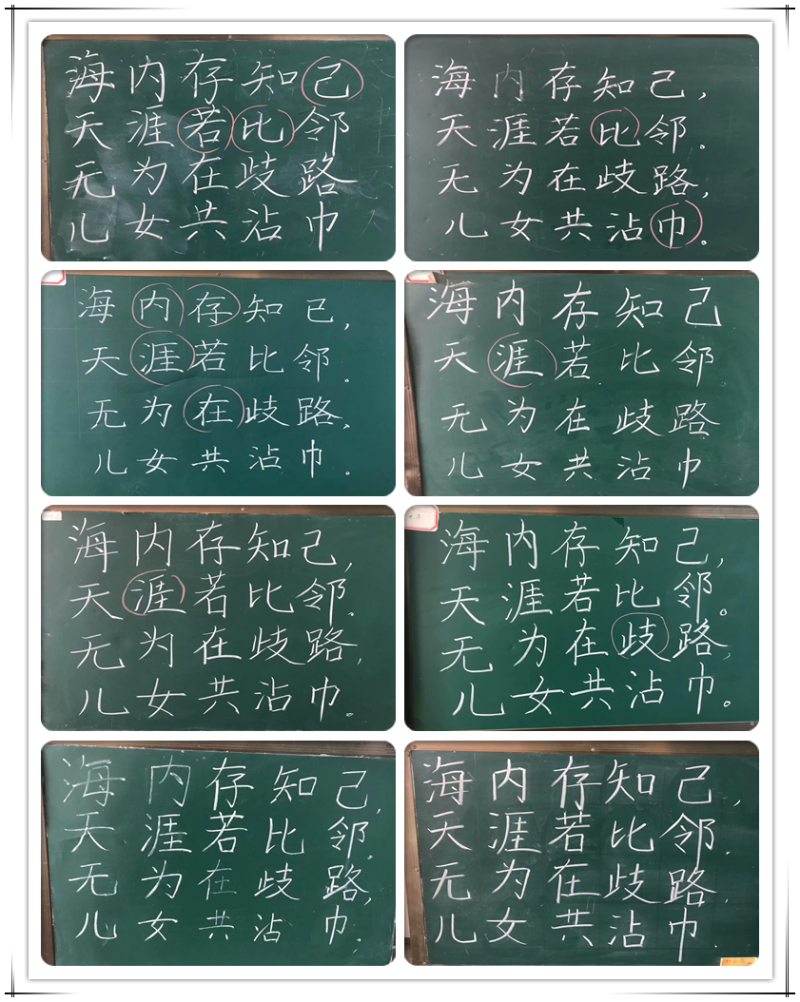 海内存知己
天涯若比邻
无为在歧路
儿女共沾巾
海内存知己，
天涯若比邻。
无为在歧路，
儿女共沾巾。
海内存知己，
天涯若比邻。
无为在歧路，
儿女共沾巾。
海内存知己
天涯若比邻
无为在歧路
儿女共沾巾
海内存知己，
天涯若比邻。
无为在歧路，
儿女共沾巾。
海内存知己，
天涯若比邻。
无为在歧路，
儿女共沾巾。
海内存知己，
天涯若比邻.
无为在歧路，
儿女共沾巾.
海内存知己，
天涯若比邻.
无为在歧路.
儿女共沾巾.